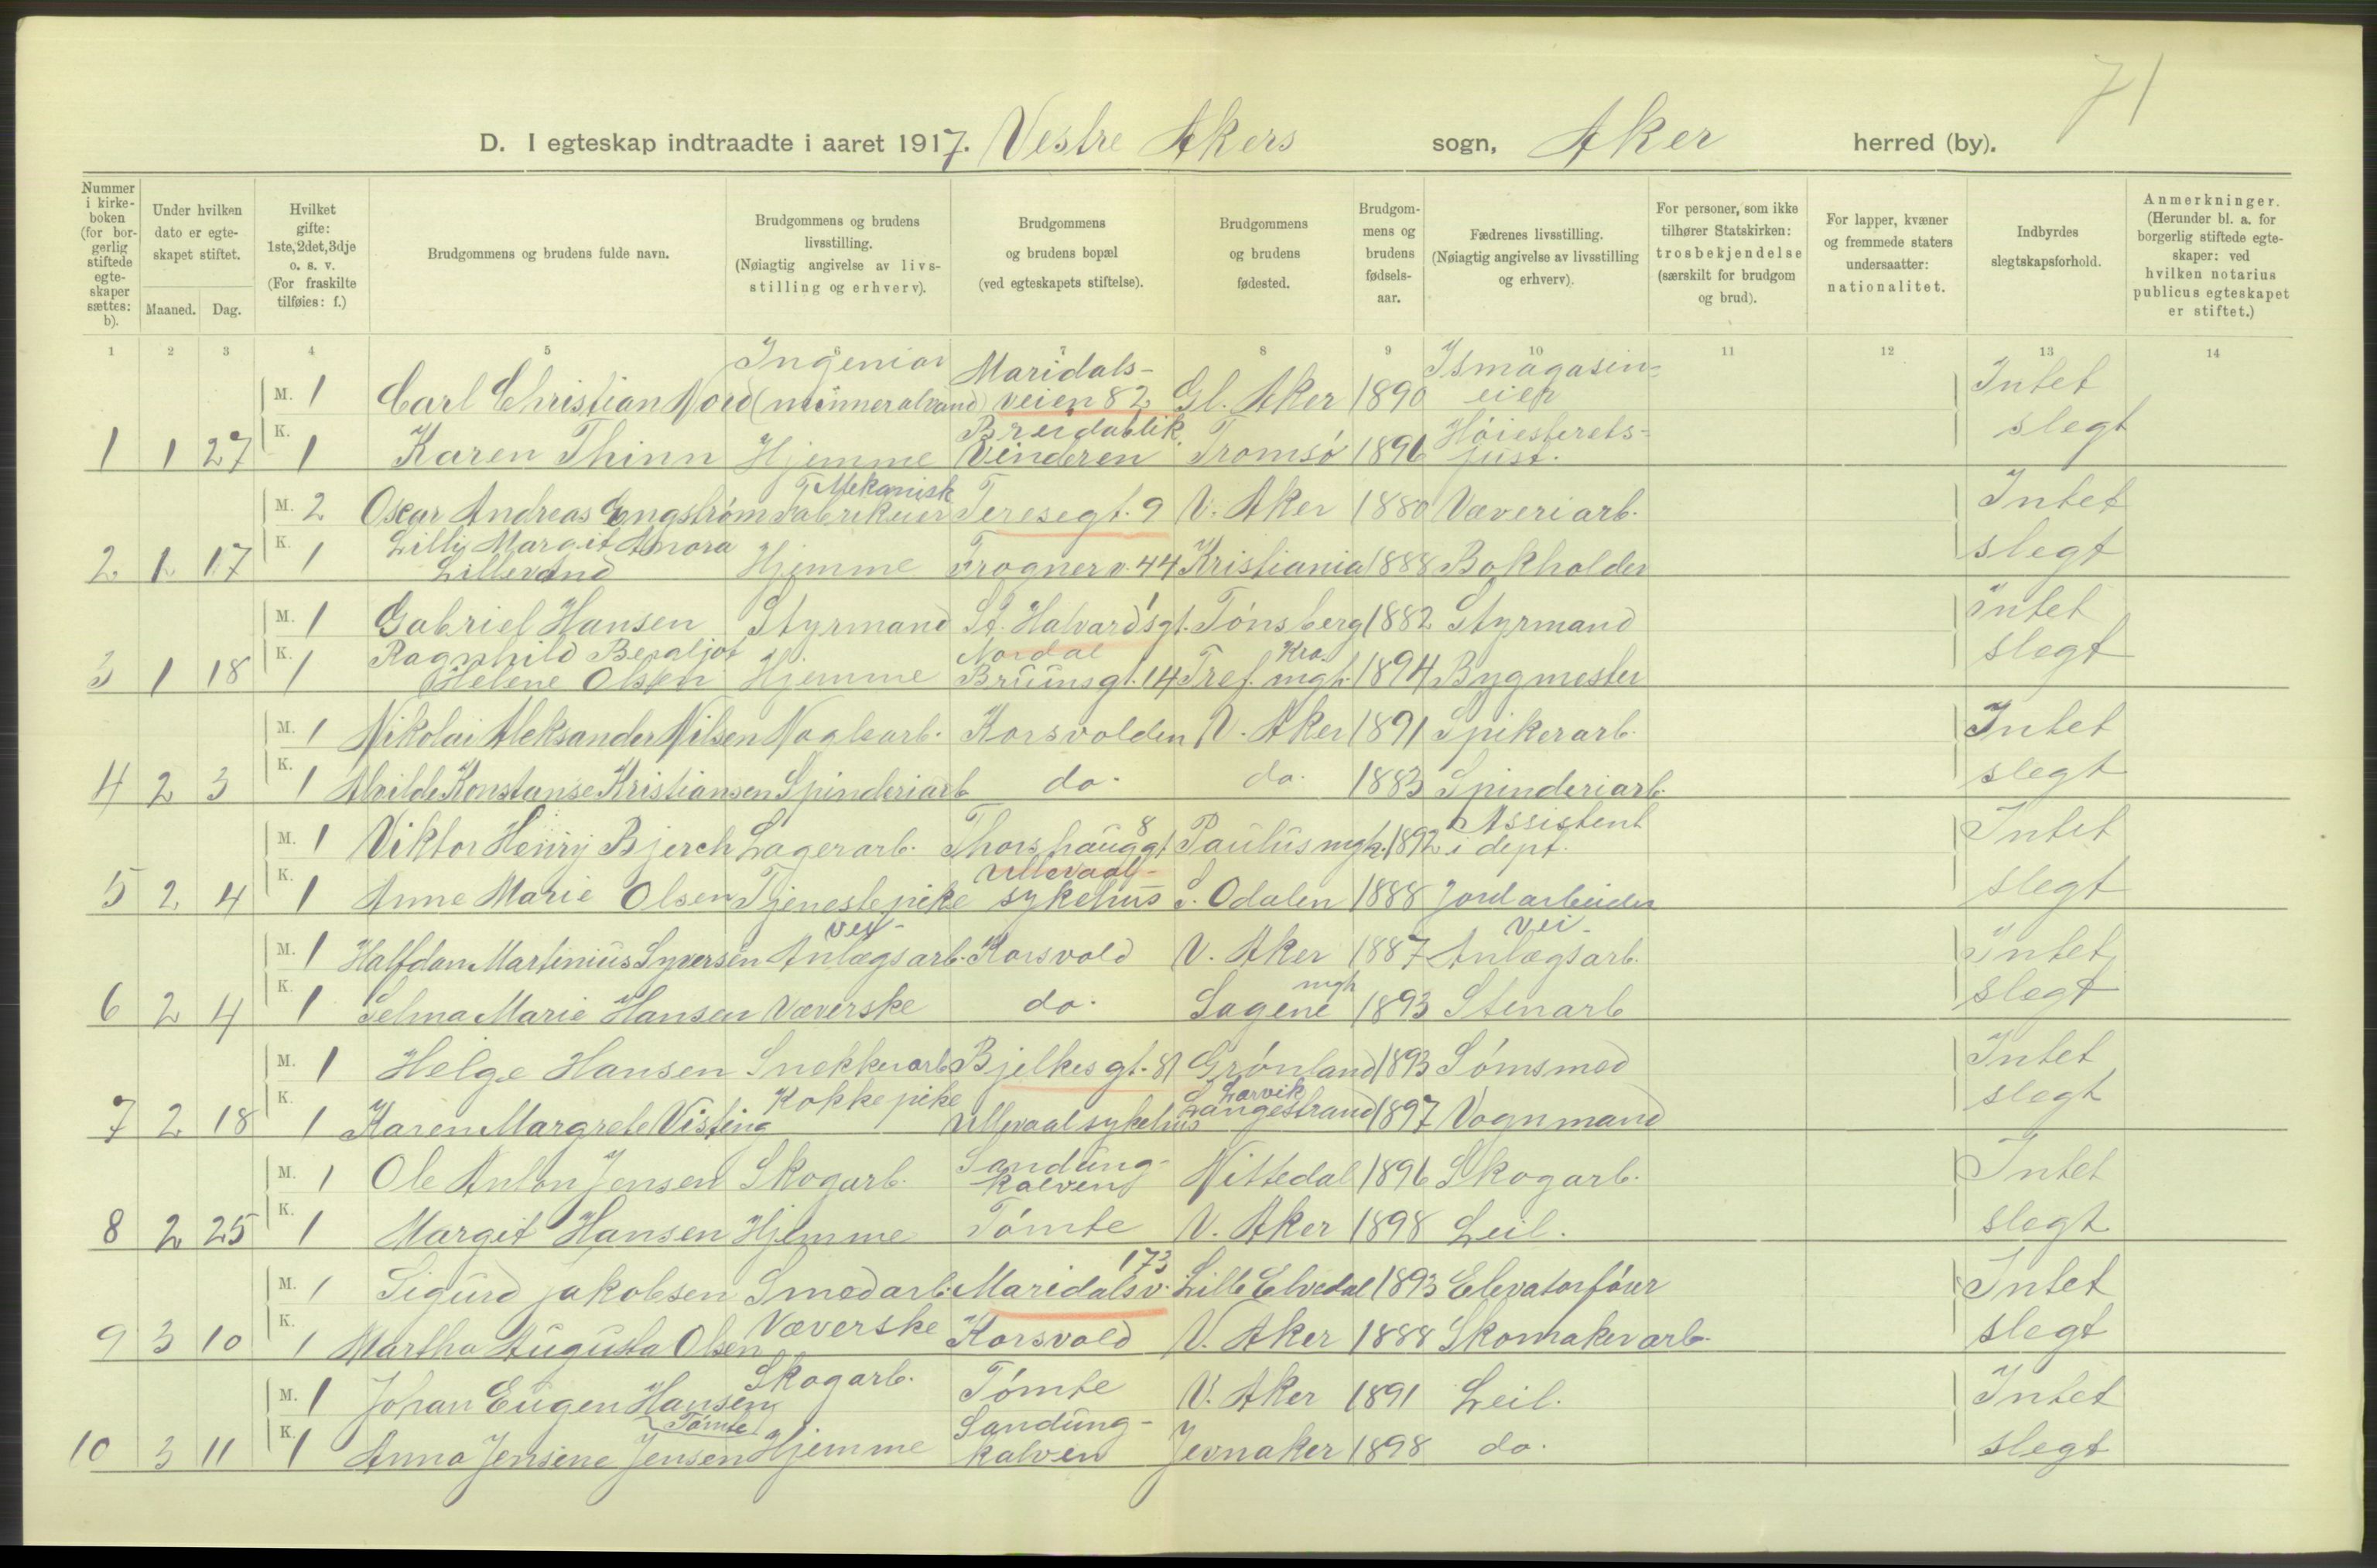 71
D. I egteskap indtraadte i aaret 1917. Vestre Akers sogn, Aker herred (by).
Nummer i kirkeboken (for borgerlig stiftede egteskaper sættes: b).
Under hvilken dato er egteskapet stiftet.
Maaned. Dag.
Hvilket gifte: 1ste, 2det, 3dje o. s. v. (For fraskilte tilføies: f.)
Brudgommens og brudens fulde navn.
Brudgommens og brudens livsstilling. (Nøiagtig angivelse av livsstilling og erhverv).
Brudgommens og brudens bopæl (ved egteskapets stiftelse).
Brudgommens og brudens fødested.
Brudgommens og brudens fødselsaar.
Fædrenes livsstilling. (Nøiagtig angivelse av livsstilling og erhverv).
For personer, som ikke tilhører Statskirken: trosbekjendelse (særskilt for brudgom og brud).
For lapper, kvæner og fremmede staters undersaatter: nationalitet.
Indbyrdes slegtskapsforhold.
Anmerkninger. (Herunder bl. a. for borgerlig stiftede egteskaper: ved hvilken notarius publicus egteskapet er stiftet.)
1 2 3 4 5 6 7 8 9 10 11 12 13 14
M. 1 Carl Christian Nord Ingeniør (minneralvand) Maridals-veien 82 Gl. Aker 1890 Ismagasin=eier Intet
1 1 27 K. 1 Karen Thinn Hjemme Breidablik Vinderen Tromsø 1896 Høiesterets=just. slegt
M. 2 Oscar Andreas Engstrøm Mekanisk Fabrikeier Teresegt. 9 V. Aker 1880 Væveriarb. Intet
2 1 17 K. 1 Lilly Margit Amora Lillevand Hjemme Frognerv. 44 Kristiania 1888 Bokholder slegt
M. 1 Gabriel Hansen Styrmand St. Halvards gt. 1 Tønsberg 1882 Styrmand Intet
3 1 18 K. 1 Ragnhild Bergljot Helene Olsen Hjemme Nordal Bruunsgt. 14 Tref. mgh. Kra. 1894 Bygmester slegt
M. 1 Nikolai Aleksander Nilsen Naglearb. Korsvolden V. Aker 1891 Spikerarb. Intet
4 2 3 K. 1 Alvilde Konstanse Kristiansen Spinderiarb do. do. 1883 Spinderiarb. slegt
M. 1 Viktor Henry Bjerch Lagerarb. Thorshauggt 8 Paulus mgh. 1892 Assistent i dept. Intet
5 2 4 K. 1 Anne Marie Olsen Tjenestepike Ullevaal-sykehus S. Odalen 1888 Jordarbeider slegt
M. 1 Halfdan Martinius Syversen Vei-Anlægsarb. Korsvold V. Aker 1887 Vei-Anlægsarb. Intet
6 2 4 K. 1 Selma Marie Hansen Væverske do. Sagene mgh 1893 Stenarb slegt
M. 1 Helge Hansen Snekkerarb Bjelkes gt. 81 Grønland 1893 Sømsmed Intet
7 2 18 K. 1 Karen Margrete Visting Kokkepike Ullevaal sykehus Langestrand Larvik 1897 Vognmand slegt
M. 1 Ole Anton Jensen Skogarb. Sandung-kalven Nittedal 1896 Skogarb. Intet
8 2 25 K. 1 Margit Hansen Hjemme Tømte V. Aker 1898 Leil. slegt
M. 1 Sigurd Jakobsen Smedarb. Maridalsv. 173 Lille Elvedal 1893 Elevatorfører Intet
9 3 10 K. 1 Martha Augusta Olsen Væverske Korsvold V. Aker 1888 Skomakerarb. slegt
M. 1 Johan Eugen Hansen Tømte Skogarb. Tømte V. Aker 1891 Leil. Intet
10 3 11 K. 1 Anna Jensine Jensen Hjemme Sandung-kalven Jevnaker 1898 do. slegt